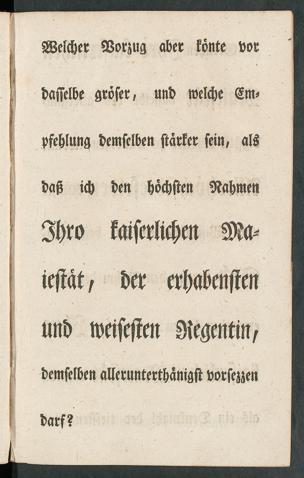 Welcher Vorzug aber könte vor
dasselbe gröser, und welche Em-
pfehlung demselben stärker sein, als
daß ich den höchsten Nahmen
Ihro kaiserlichen Ma-
iestät, der erhabensten
und weisesten Regentin,
demselben allerunterthänigst vorsezzen
darf?